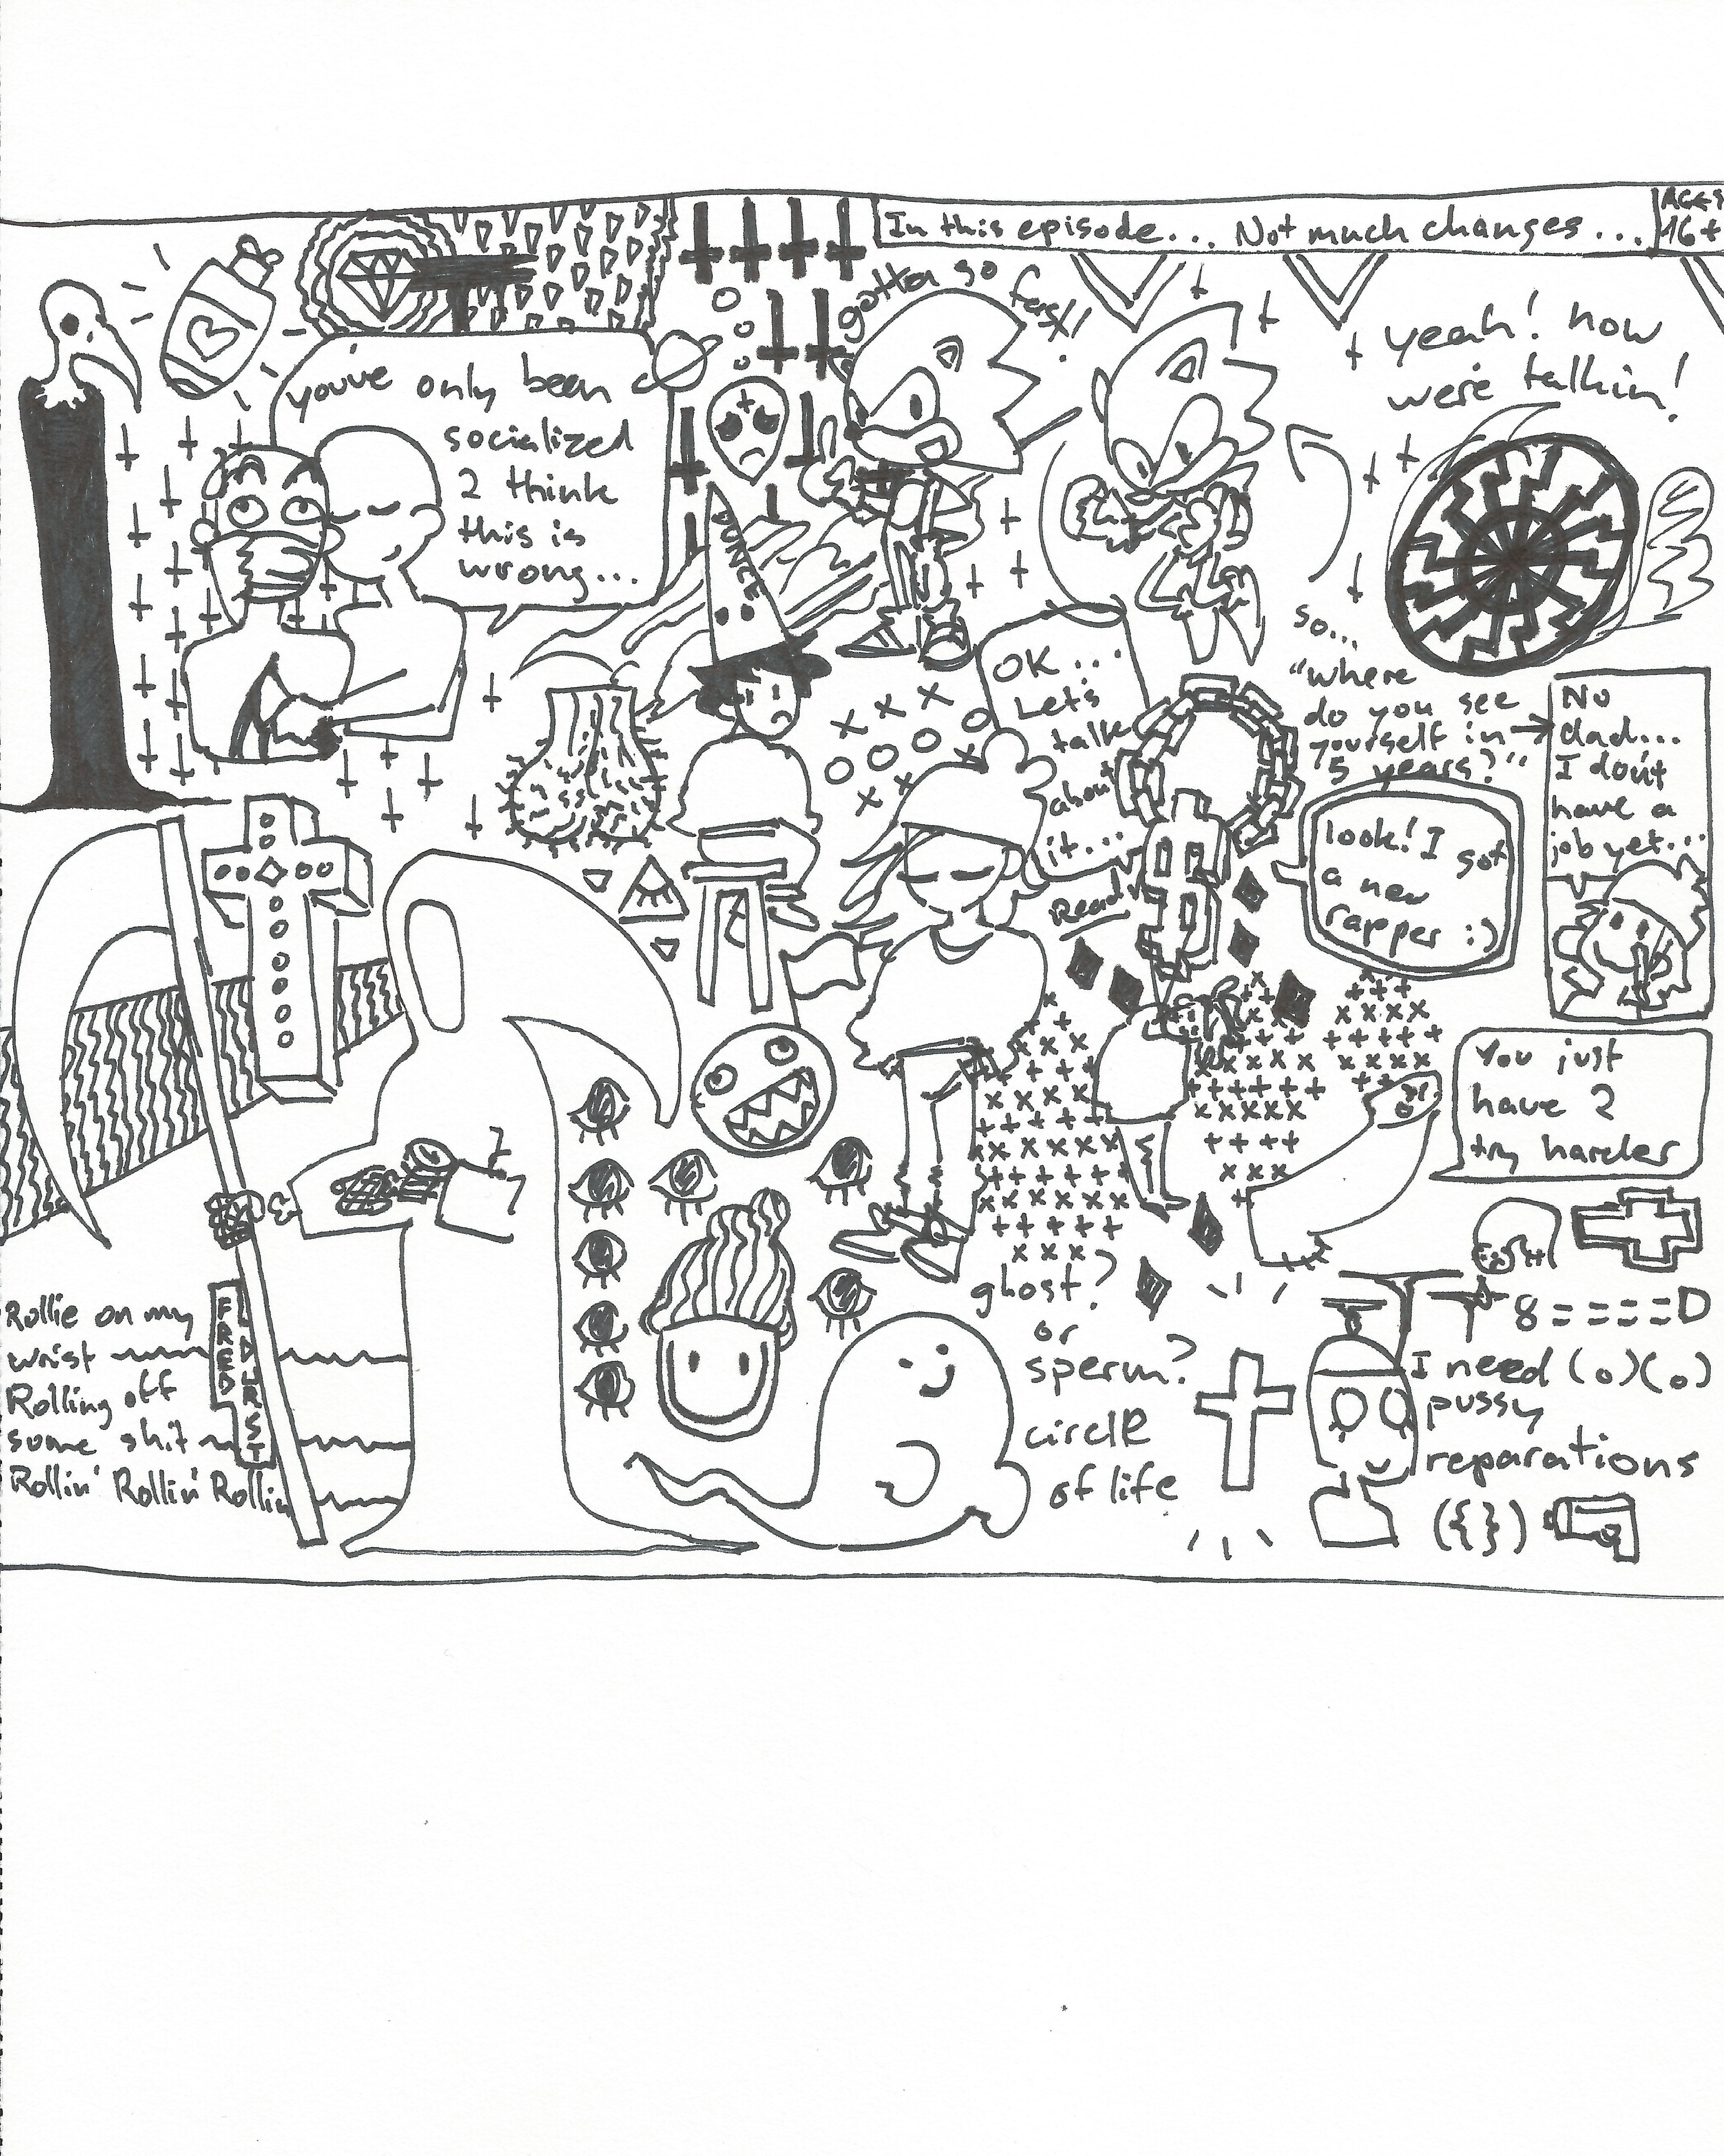 In this episode... Not much changes...
AGES
16+
gotta go fast!!
yeah! now
we're talkin!
you've only been
socialized
2 think
this is
wrong...
DUNCE
OK...
Let's
talk
about
it...
Read
so...
"where
do you see
yourself in
5 years?"
No
dad...
I don't
have a
job yet...
look! I got
a new
rapper :)
You just
have 2
try harder
ghost?
or
sperm?
circle
of life
8====D
I need (o)(o)
pussy
reparations
({})
Rollie on my
wrist
Rolling off
some shit
Rollin' Rollin' Rollin
FRED
DURST